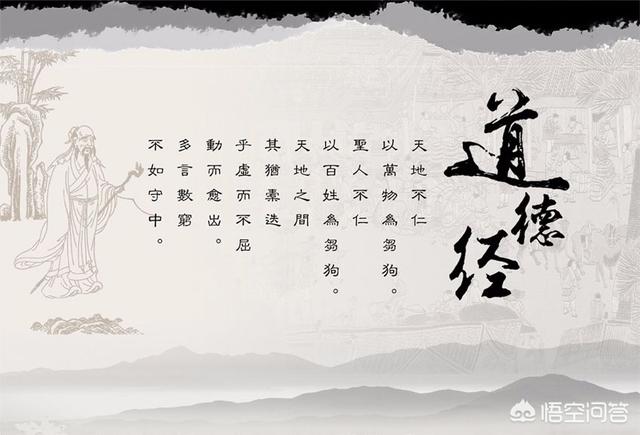 道德经
天地不仁
以萬物為芻狗。
聖人不仁
以百姓為芻狗。
天地之間
其猶橐迭
乎虛而不屈
動而愈出。
多言數窮
不如守中。
悟空问答